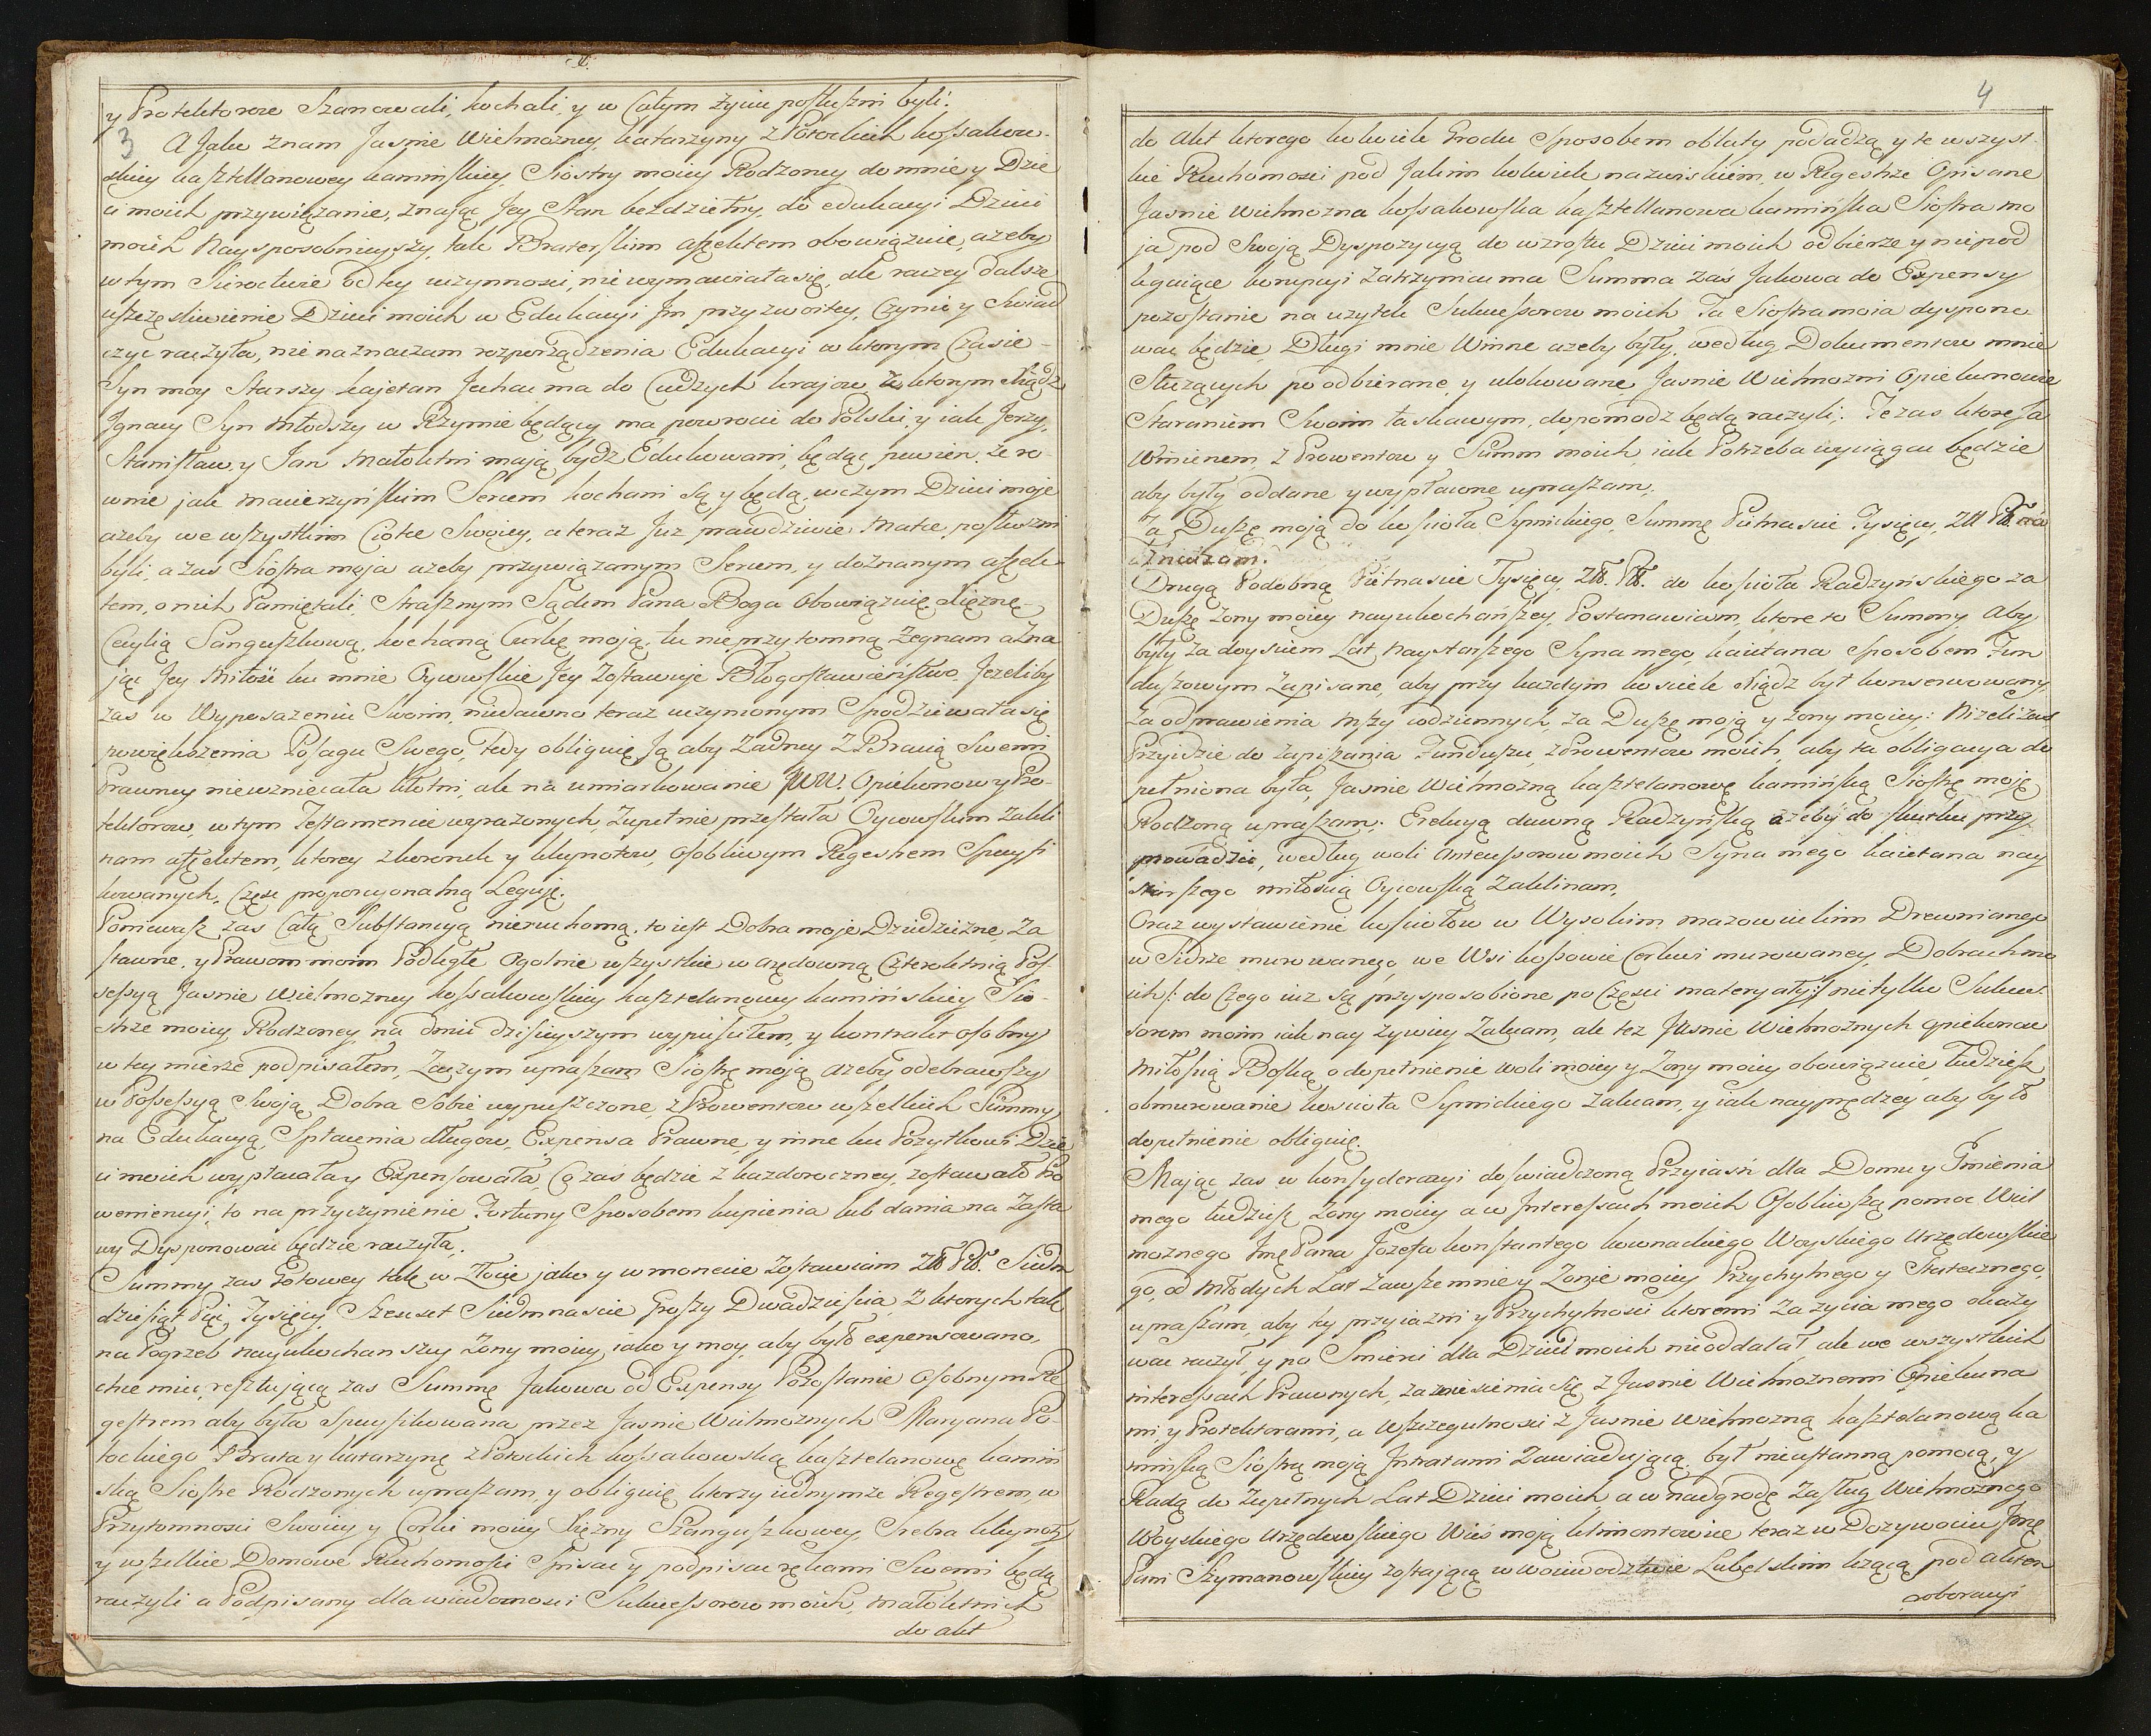 y Protektorow Szanowali, kochali, y w Całym życiu posłuszni byli.
3
A Jako znam Jasnie Wielmozney Katarzyny z Potockich Kossakow-
skiey Kasztellanowey Kaminskiey, Siostry moiey Rodzoney do mnie y Dzie
ci moich przywiązanie, znając Jey Stan bezdzietny, do edukacyi Dzieci
moich Naysposobnieyszy, tak Braterskim affektem obowiązuie, azeby
w tym Sieroctwie od tey uczynnosci, nie wymawiała się, ale raczey dalsze
uszczęsliwienie Dzieci moich w Edukacyi Im przyzwoitey, Czynić y Swiad
czyc raczyła, nie naznaczam rozporządzenia Edukacyi w ktorym Czasie
Syn moy Starszy Kajetan Jechac ma do Cudzych Kraiow w ktorym Xiądz
Jgnacy Syn Młodszy w Rzymie będący ma powrocic do Polski, y iak Jerzy,
Stanisław, y Jan Małoletni mają bydz Edukowani, będąc pewien, że ro-
wnie jak Macierzyńskim Sercem kochani są y będą, wczym Dzieci moje
azeby we wszystkim Ciotce Swoiey, a teraz Juz prawdziwie Matce posłuszni
byli, a zas Siostra moja azeby przywiązanym Sercem, y doznanym affek-
tem, o nich Pamiętali, Strasznym Sądem Pana Boga Obowiązuię Xięznę-
Cecylią Sanguszkową, kochaną Corkę moją, tu nieprzytomną zegnam a Zna
jąc Jey Miłość ku mnie Oycowskie Jey Zostawuje Błogosławieństwo. Jezeliby
zas w Wyposazeniu Swoim, niedawno teraz uczynionym Spodziewała się
powiększenia Posagu Swego, tedy obliguię Ją aby Zadney Z Bracią Swemi
Prawney niewzniecała kłotni, ale na umiarkowanie JWW. Opiekonow y Pro-
tektorow, w tym Testamencie wyrazonych, Zupełnie przestała Oycowskim Zakli
nam affektem, ktorey z koronek y kleynotow, Osobliwym Regestrem Specyfi
kowanych, Częsc proporcyonalną Leguję.
Poniewasz zas Całą Substancyą nieruchomą, to iest Dobra moje Dziedziczne, Za
stawne, y Prawom moim Podległe Ogolnie wszystkie w arędowną Czteroletnią Pos
sessyą Jasnie Wielmozney Kossakowskiey Kasztelanowy Kaminskiey Sio-
strze moiey Rodzoney, na dniu dzisieyszym wypuscilem, y kontrakt osobny
w tey mierze podpisałem, Zaczym upraszam Siostrę moją azeby odebrawszy
w Possessyą Swoją Dobra Sobie wypuszczone, z Prowentow wszelkich Summy
na Edukacyą, Spłacenia długow, Expensa Prawne, y inne ku Pozytkowi Dzie
ci moich wypłacała y Expensowała, Co zas będzie z kazdoroczney, zostawało Pro
wenencyi, to na przyczynienie Fortuny Sposobem kupienia lub dania na Zasta
wy Dysponowac będzie raczyła.
Summy zas Gotowey tak w Złocie jako y w monecie Zostawiam Zll Pll. Siedm
dziesiąt Pięc, Tysięcy, Szescset Siedmnascie Groszy Dwadziescia, z ktorych tak
na Pogrzeb nayukochan szey Zony moiey, iako y moy, aby było expensowano,
chce miec, resztującą zas Summę Jakowa od Expensy Pozostanie osobnym Re
gestrem aby była Specyfikowana przez Jasnie Wielmoznych Maryana Po-
tockiego Brata y Katarzynę z Potockich Kossakowską Kasztelanowę Kamin
ską Siostre Rodzonych upraszam, y obliguię, ktorzy iednymze Regestrem, w
Przytomnosci Swoiey, y Corki moiey Xięzny Szanguszkowey, Srebra kleynoty
y wszelkie Domowe Ruchomosci Spisac y podpisac rękami Swemi będą
raczyli a Podpisany dla wiadomosci Sukcessorow moich, Małoletnich
do akt
4
do akt ktorego kolwiek Grodu Sposobem oblaty podadzą y te wszyst-
kie Ruchomosci pod Jakim kolwiek nazwiskiem, w Regestrze Opisane
Jasnie Wielmozna Kossakowska Kasztellanowa Kamińska Siostra mo
ja pod Swoją Dyspozycyą do wzrostu Dzieci moich odbierze y niepod
legaiące korupcyi zatrzymac ma Summa zas Jakowa do Expensy
pozostanie na uzytek Sukcessorow moich Ta Siostra moia dyspono
wac będzie, Długi mnie Winne azeby były, według Dokumentow mnie
Słuzących poodbierane, y ulokowane Jasnie Wielmozni Opiekunowie
Staraniem Swoim łaskawym, dopomodz będą raczyli; Te zas ktore Ja
Winienem, z Prowentow y Summ moich, iak Potrzeba wyciągac będzie
aby były oddane y wypłacone upraszam,
Za Duszę moją do kosciola Syrnickiego, Summę Pietnascie Tysięcy, Zll Pll. na
znaczam.
Drugą Podobną Piętnascie Tysięcy, Zll. Pll. do kosciola Radzyńskiego za
Duszę Zony moiey nayukochańszey, Postanawiam, ktore to Summy Aby
były za doysciem Lat Naystarszego Syna mego, Kaietana Sposobem Fun
duszowym Zapisane, aby przy kazdym kosciele Xiądz był konserwowany
za odprawienia mszy codziennych, za Duszę moją y zony moiey: Nizeli zas
Przyidzie do zapisania Funduszu, z Prowentow moich, aby ta obligacya do
pełniona była, Jasnie Wielmozną Kasztelanowę Kamińską Siostrę moję
Rodzoną upraszam; Erekcyą dawną Radzyńską azeby do skutku przy
prowadzic, według woli Antecessorow moich Syna mego Kaietana nay
starszego miłoscią Oycowską Zaklinam.
Oraz wystawienie kosciołow w Wysokim mazowieckim Drewnianego
w Sidrze murowanego, we Wsi Kossowie Cerkwi murowaney, Dobrach mo
ich /: do Czego iuz są przysposobione po Częsci materyały :/ nietylko Sukces
sorom moim iak nay zywiey Zalecam, ale tez Jasnie Wielmoznych Opiekunow
Miłoscią Boską o dopełnienie woli moiey y Zony moiey obowiązuię, tudziesz
obmurowanie kosciola Syrnickiego zalecam, y iak nayprędzey aby było
dopełnienie obliguię.
Maiąc zas w konsyderacyi doswiadczoną Przyiasń dla Domu y Imienia
mego tudziesz zony moiey a w Interessach moich Osobliwszą pomoc Wiel
moznego Imę Pana Jozefa Konstantego Kownackiego Woyskiego Urzędowskie
go, od młodych Lat zawsze mnie y Zonie moiey Przychylnego y Statecznego,
upraszam, aby tey przyiazni y Przychylnosci ktoremi za zycia mego okazy
wac raczył, y po Smierci dla Dzieci moich nieoddalał, ale we wszystkich
interessach Prawnych, zaniesienia się z Jasnie Wielmoznemi Opiekuna
mi, y Protektorami, a wszczegulnosci z Jasnie Wielmozną Kasztelanową Ka
minską Siostrą moją Intratami Zawiadującą, był nieustanną pomocą, y
Radą do Zupełnych Lat Dzieci moich, a w nadgrodę Zasług Wielmoznego
Woyskiego Urzędowskiego Wieś moją Klimontowice teraz w Dozywociu Jmę
Pani Szymanowskiey zostającą w Woiewodztwie Lubelskim lezącą pod akten
roboracyi